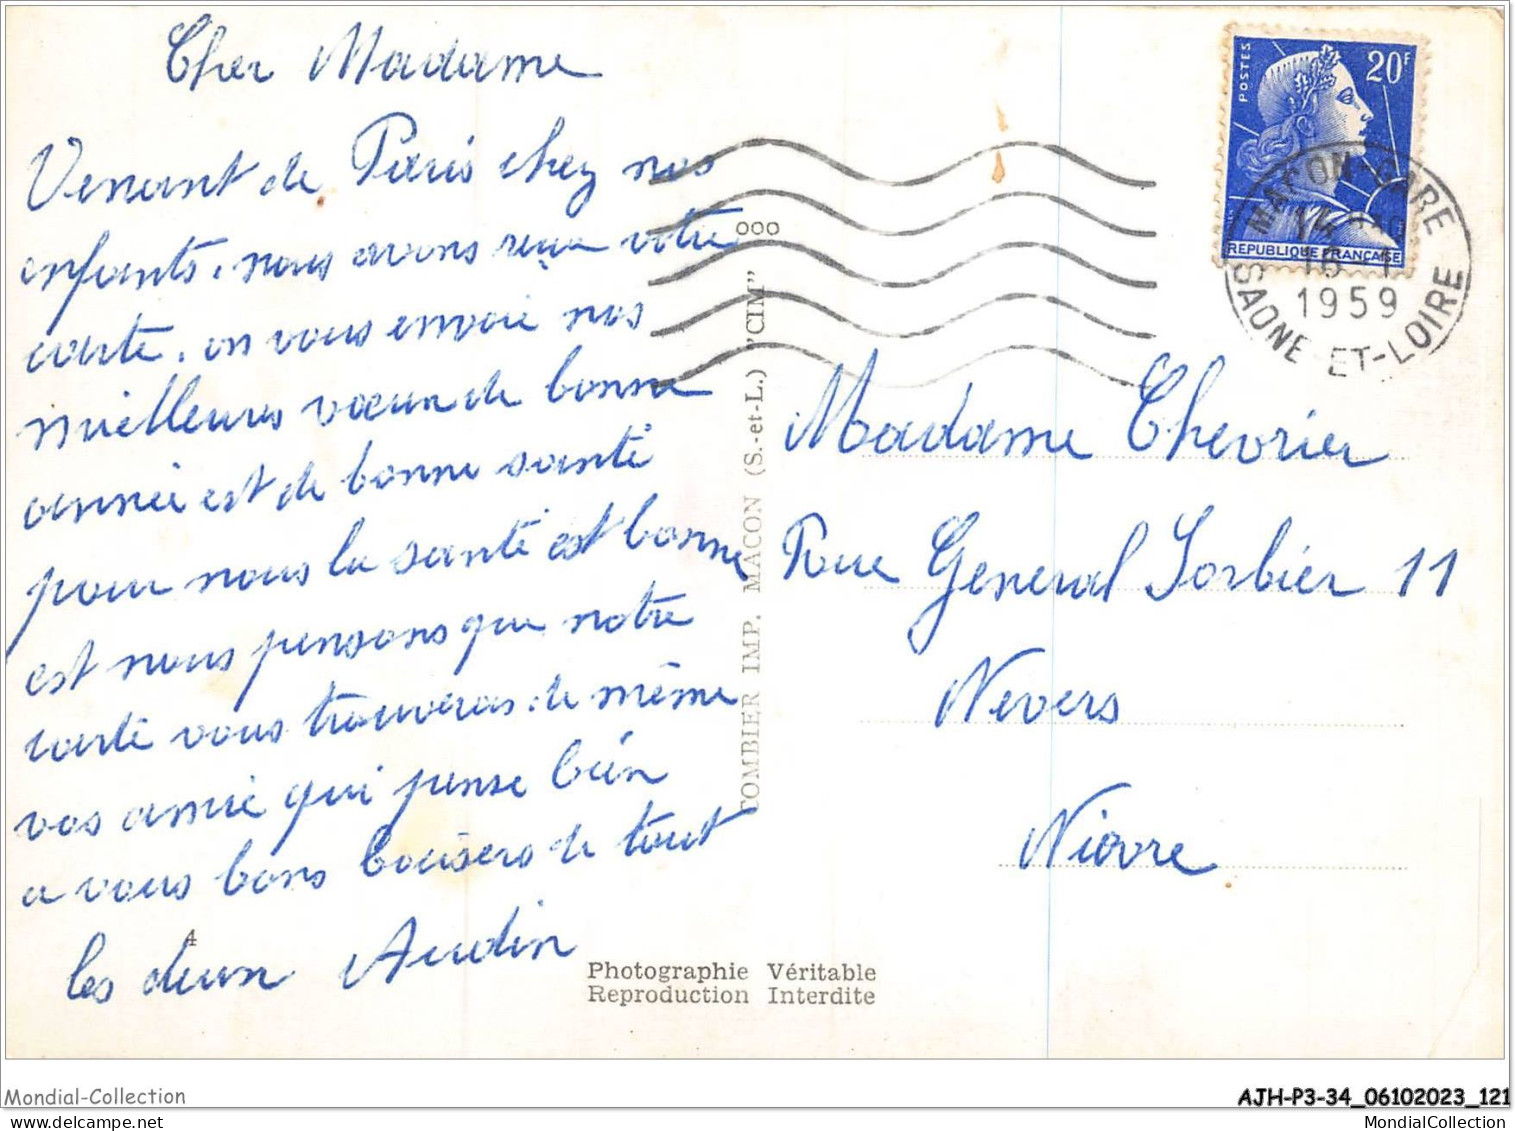 Cher Madame
Venant de Paris chez nos
enfants, nous avons reçu votre
carte, on vous envoie nos
meilleures vœux de bonne
année est de bonne santé
pour nous la santé est bonne
est nous pensons que notre
carte vous trouveras de même
vos amie qui pense bien
a vous bons baisers de tout
les deux Audin
4
Photographie Véritable
Reproduction Interdite
COMBIER IMP. MACON (S.-et-L.) "CIM"
ooo
POSTES
20F
REPUBLIQUE FRANÇAISE
MACON-GARE
1959
SAONE-ET-LOIRE
Madame Chevrier
Rue General Sorbier 11
Nevers
Nièvre
Mondial-Collection
AJH-P3-34_06102023_121
MondialCollection